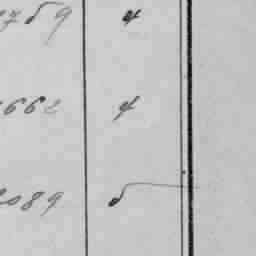 759 4
662 4
2089 5